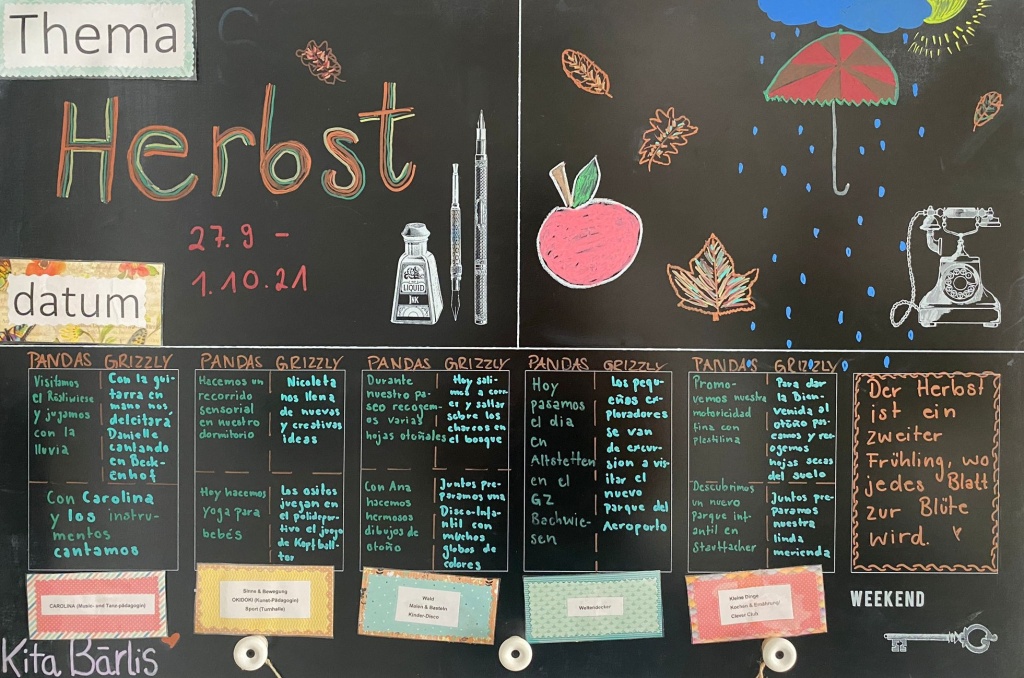 Thema
Herbst
27.9 -
1.10.21
datum
LIQUID
INK
PANDAS GRIZZLY
Visitamos
el Rösliwiese
y jugamos
con la
lluvia
Con la gui-
tarra en
mano nos
delcitará
Danielle
cantando
en Beck-
enhof
Con Carolina
y los instru-
mentos
cantamos
CAROLINA (Musik- und Tanz-pädagogin)
PANDAS GRIZZLY
Hacemos un
recorrido
sensorial
en nuestro
dormitorio
Nicoleta
nos llena
de nuevas
y creativas
ideas
Hoy hacemos
Yoga para
bebés
Los ositos
juegan en
el polidepor-
tivo el juego
de Kopfball-
tor
Sinne & Bewegung
OKIDOKI (Kunst-Pädagogin)
Sport (Turnhalle)
PANDAS GRIZZLY
Durante
nuestro pa-
seo recogem-
os varias
hojas otoñales
Hoy sali-
mos a corr-
er y saltar
sobre los
charcos en
el bosque
Con Ana
hacemos
hermosos
dibujos de
otoño
Juntos pre-
paramos una
Disco-Infa-
ntil con
muchos
globos de
colores
Wald
Malen & Basteln
Kinder-Disco
PANDAS GRIZZLY
Hoy
pasamos
el dia
en
Altstetten
en el
GZ
Bachwie-
sen
Los pequ-
eños ex-
ploradores
se van
de excur-
sion a vis-
itar el
nuevo
parque del
Aeroporto
Weltendecker
PANDAS GRIZZLY
Promo-
vemos nuestra
motoricidad
fina con
plastilina
Para dar
la Bien-
venida al
otoño pas-
eamos y rec-
ogemos
hojas secas
del suelo
Descubrimos
un nuevo
Parque inf-
antil en
Stauffacher
Juntos pre-
paramos
nuestra
linda
merienda
Kleine Dinge
Kochen & Ernährung/
Clever Club
Der Herbst
ist ein
zweiter
Frühling, wo
jedes Blatt
zur Blüte
wird.
WEEKEND
Kita Bärlis